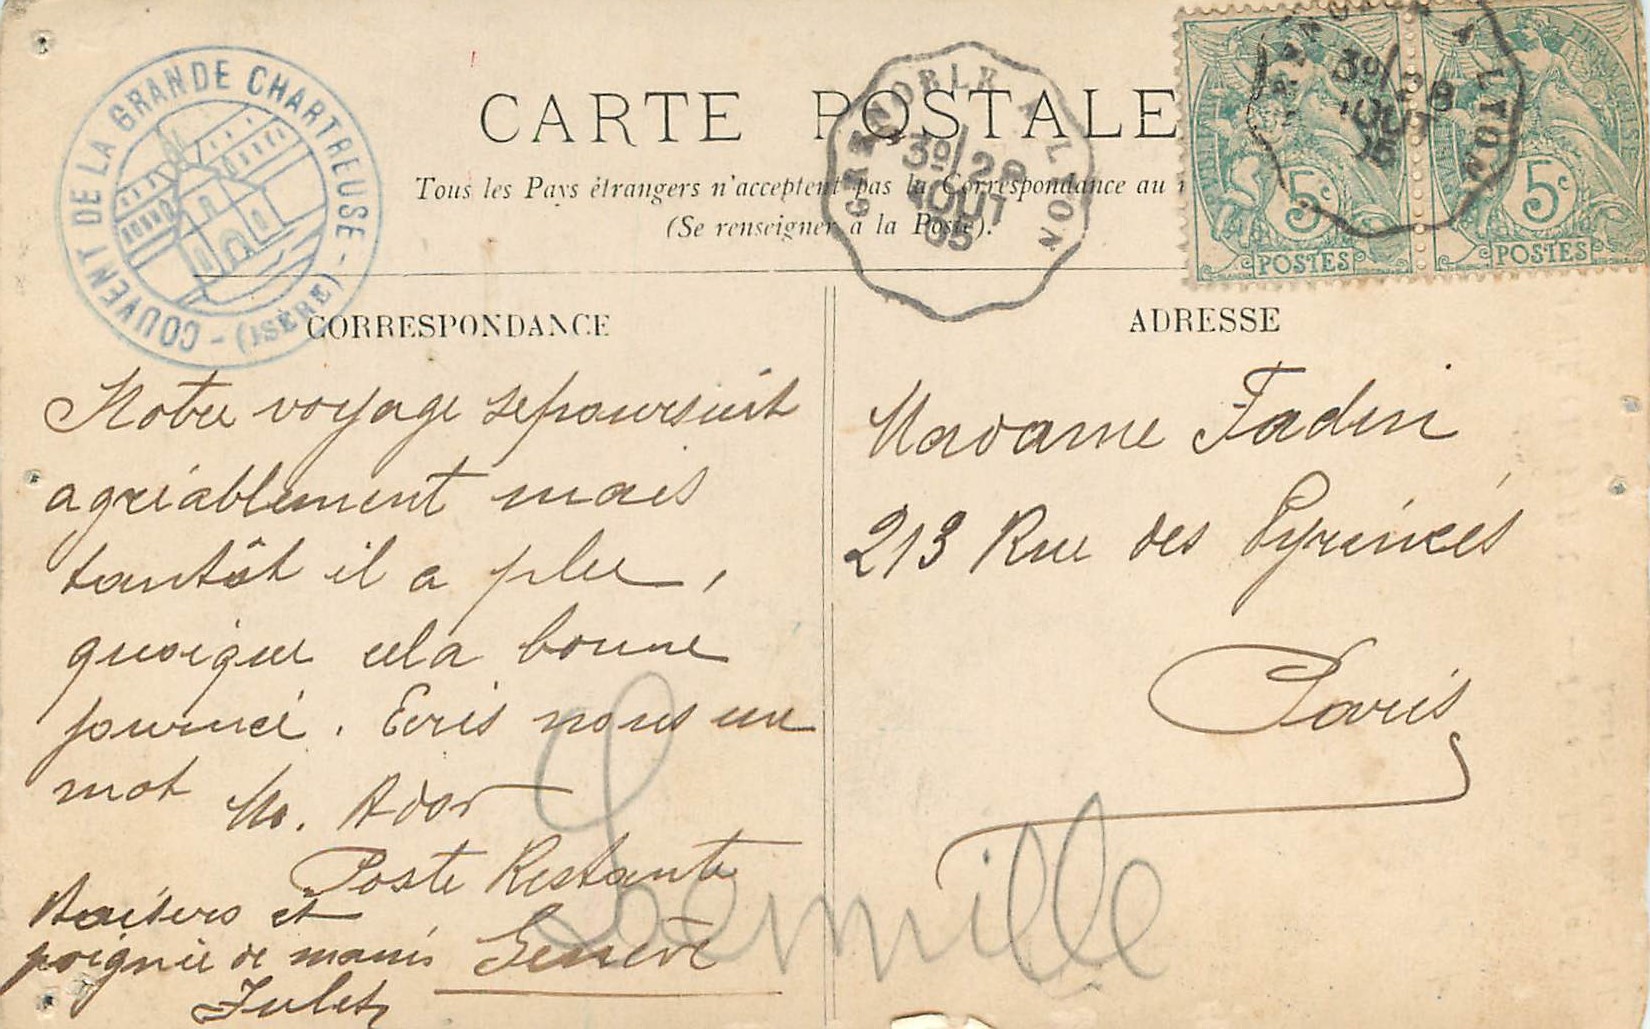 COUVENT DE LA GRANDE CHARTREUSE - (ISÈRE) -
CARTE POSTALE
Tous les Pays étrangers n'acceptent pas la Correspondance au
(Se renseigner à la Poste).
GRENOBLE A LYON
3º/28
AOUT
05
A LYON
3º/28
AOUT
05
5c
POSTES
5c
POSTES
CORRESPONDANCE
Notre voyage se poursuit
agréablement mais
tantôt il a plu,
quoique cela bonne
journée. Ecris nous un
mot M. Ador
Poste Restante
Genève
Baisers et
poignée de mains
Jules
ADRESSE
Madame Fadin
213 Rue des Pyrénées
Paris